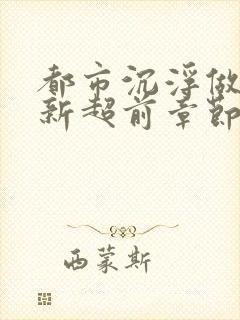 都市沉浮做
新超前章節
西蒙斯